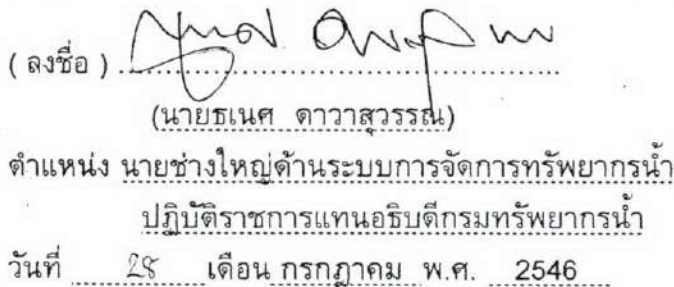 ( ลงชื่อ )
(นายธเนศ ดาวาสุวรรณ)
ตำแหน่ง นายช่างใหญ่ด้านระบบการจัดการทรัพยากรน้ำ
ปฏิบัติราชการแทนอธิบดีกรมทรัพยากรน้ำ
วันที่ 28 เดือน กรกฎาคม พ.ศ. 2546